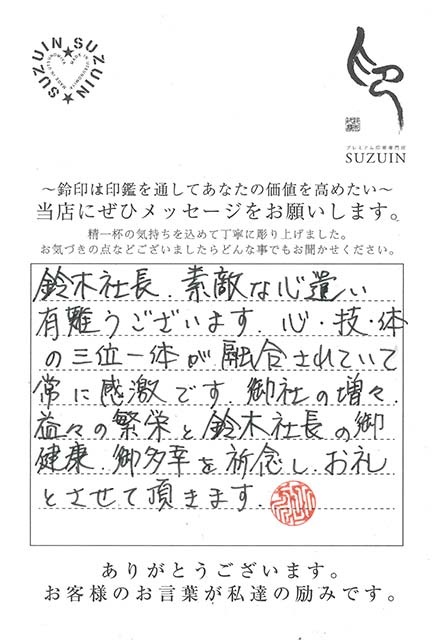 SUZUIN★SUZUIN★
プレミアム印章専門店
SUZUIN
～鈴印は印鑑を通してあなたの価値を高めたい～
当店にぜひメッセージをお願いします。
精一杯の気持ちを込めて丁寧に彫り上げました。
お気づきの点などございましたらどんな事でもお聞かせください。
鈴木社長.素敵な心遣い
有難うございます.心・技・体
の三位一体が融合されていて
常に感激です.御社の増々.
益々の繁栄と鈴木社長の御
健康.御多幸を祈念し.お礼
とさせて頂きます.
ありがとうございます。
お客様のお言葉が私達の励みです。